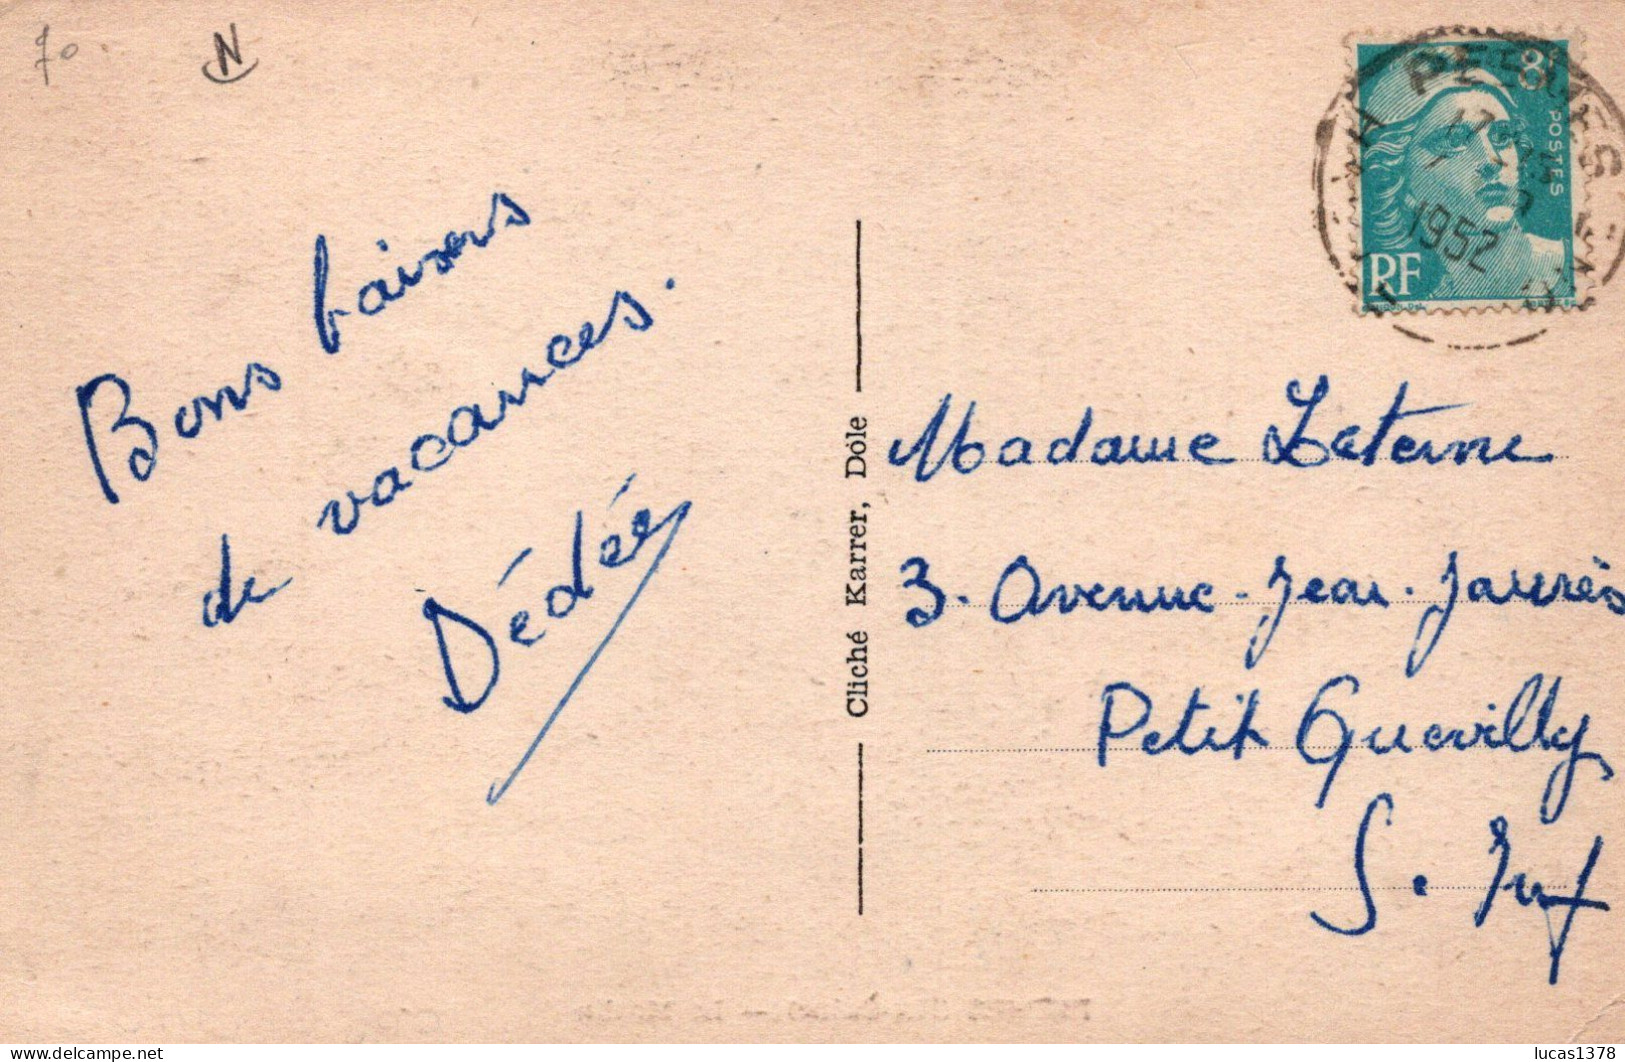 70
N
Bons baisers
de vacances.
Dédée
Cliché Karrer, Dôle
8F
POSTES
RF
PESMES
17
1952
Madame Leterme
3. Avenue. Jean. Jaurès
Petit Quevilly
S. Inf
lucas1378